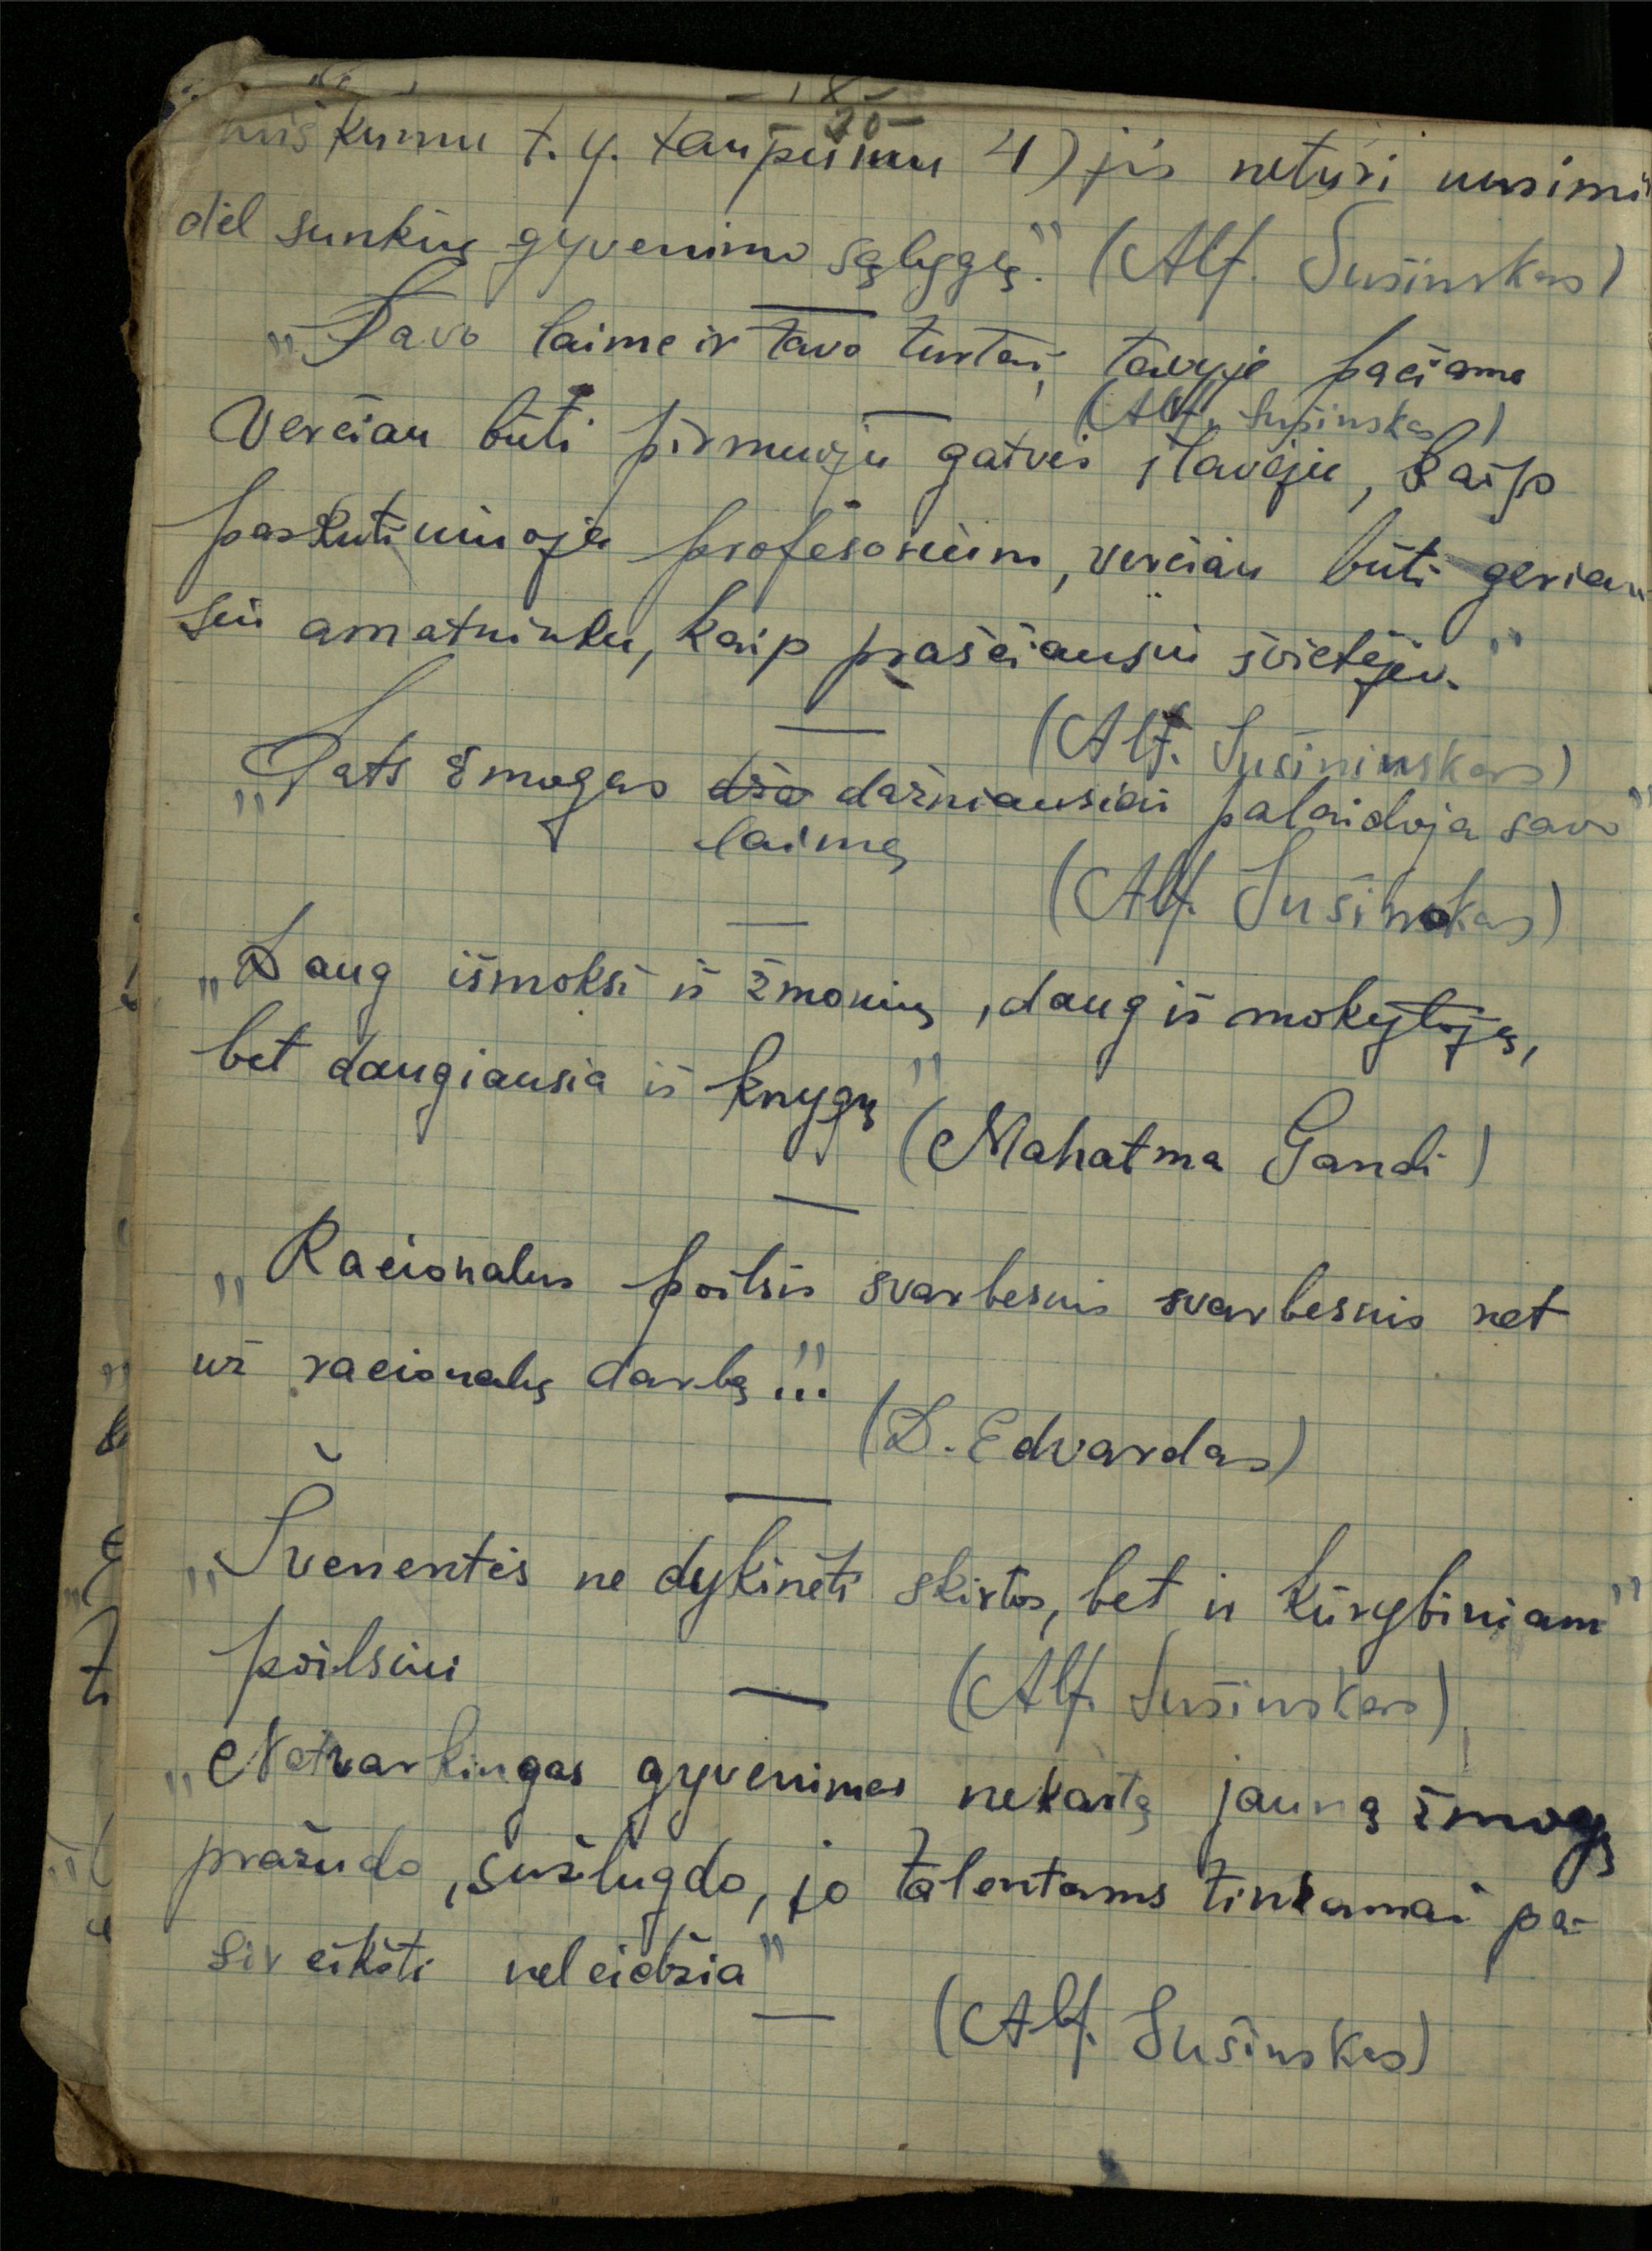 - 20 -
miškumu t. y. taupumu 4) jis neturi nusimi
dėl sunkių gyvenimo sąlygų." (Alf. Šušinskas)
„Tavo laimė ir tavo turtai, tavyje pačiame
(Alf. Sušinskas)
Verčiau būti pirmuoju gatvės šlavėju, kaip
paskutiniuoju profesorium, verčiau būti geriau-
siu amatninku, kaip prasčiausiu švietėju."
(Alf. Sušininskas)
„Pats žmogas dža dažniausiai palaidoja savo"
laimę
(Alf. Sušinskas)
„Daug išmoksi iš žmonių, daug iš mokytojų,
bet daugiausia iš knygų"
(Mahatma Gandi)
„Racionalus poilsis svarbesnis svarbesnis net
už racionalų darbą!!!"
(D. Edvardas)
„Švenentės ne dykinėti skirtos, bet ir kūrybiniam"
poilsiui
(Alf. Sušinskas)
„Netvarkingas gyvenimas nekartą jauną žmogų
pražudo, sužlugdo, jo talentams tinkamai pa-
sireikšti neleidžia"
(Alf. Sušinskas)